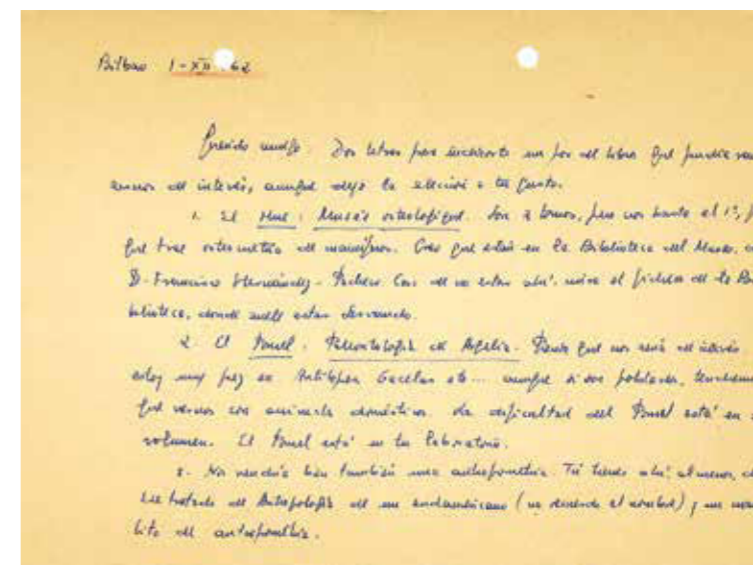 Bilbao 1-XII-62
Querido amigo: Dos letras para indicarte un par de libros que pudieran
de interés, aunque dejo la elección a tu gusto.
1. El Hue: Musée ostéologique. Son 2 tomos, pero nos basta el 1º,
que trae osteometria de mamíferos. Creo que está en la Biblioteca del Museo,
D. Francisco Hernández-Pacheco. Caso de no estar ahí, mira el fichero de la
blioteca, donde suele estar
2. El Pomel. Paleontología de Argelia. Pienso que nos será de interés
estoy muy pez en Antílopes Gacelas etc... aunque si son
que vernos con animales domésticos. La dificultad del Pomel está en
volumen. El Pomel está en tu Laboratorio.
3. Nos vendría bien también una antropometría. Tú tienes ahí, al menos,
un tratado de Antropología de un sudamericano (no recuerdo el nombre) y un
lito de antropometría.